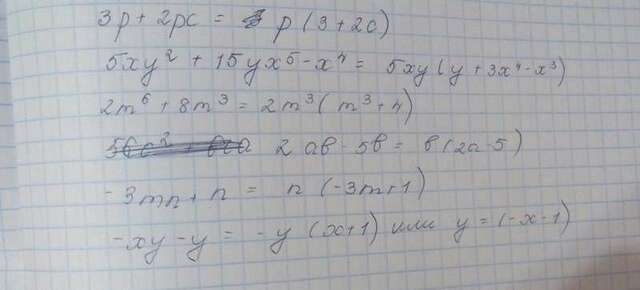 3p + 2pc = p (3 + 2c)
5xy² + 15yx⁵ - x⁴ = 5xy (y + 3x⁴ - x³)
2m⁶ + 8m³ = 2m³ (m³ + 4)
2ab - 5b = b (2a - 5)
-3mn + n = n (-3m + 1)
-xy - y = -y (x + 1) или y = (-x - 1)